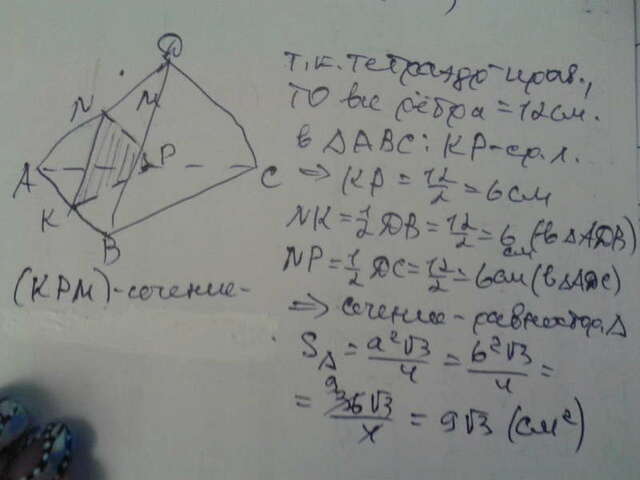 D
N
M
P
A
C
K
B
(КРМ)-сечение-
Т.к. тетраэдр-прав.,
то все рёбра = 12 см.
в ΔABC: КР-ср.л.
⇒ КР = 12/2 = 6 см
NK = 1/2 DB = 12/2 = 6 см (в ΔADB)
NP = 1/2 DC = 12/2 = 6 см (в ΔADC)
⇒ сечение-равностор. Δ
SΔ = a²√3/4 = 6²√3/4 =
= 9 36√3/4 = 9√3 (см²)